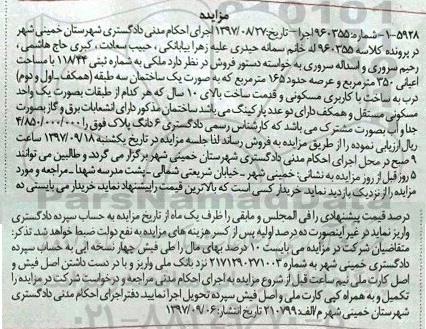 مزایده
۱-۵۹۲۸-شماره: ۹۶۰۳۵۵ اجرا- تاریخ: ۱۳۹۷/۰۸/۲۷ اجرای احکام مدنی دادگستری شهرستان خمینی شهر
در پرونده کلاسه ۹۶۰۳۵۵ له خانم سمانه حیدری علیه زهرا بیابانکی، حبیب سعادت، کبری حاج هاشمی،
رحیم سروری و اسداله سروری به خواسته دستور فروش در نظر دارد ملکی به شماره ثبتی ۱۱۸/۴۴ با مساحت
اعیانی ۳۵۰ مترمربع و عرصه حدود ۱۶۵ مترمربع که به صورت یک ساختمان سه طبقه (همکف، اول و دوم)
درب به ساخت با کاربری مسکونی و قدمت ساخت بالای ۱۰ سال که هر کدام از طبقات بصورت یک واحد
مسکونی مستقل و همکف دارای دو عدد پارکینگ می باشد ساختمان مذکور دارای انشعابات برق و گاز بصورت
جدا و آب بصورت مشترک می باشد که کارشناس رسمی دادگستری ۶ دانگ پلاک فوق را ۴/۸۵۰/۰۰۰/۰۰۰
ریال ارزیابی نموده را از طریق مزایده به فروش رساند لذا جلسه مزایده در تاریخ یکشنبه ۱۳۹۷/۰۹/۱۸ ساعت
۹ صبح در محل اجرای احکام مدنی دادگستری شهرستان خمینی شهر برگزار می گردد و طالبین می توانند
۵ روز قبل از روز مزایده به نشانی: خمینی شهر - خیابان شریعتی شمالی - پشت مدرسه شهدا - مراجعه و مورد
مزایده را از نزدیک بازدید نماید. خریدار کسی است که بالاترین قیمت را پیشنهاد نماید، خریدار می بایستی ده
درصد قیمت پیشنهادی را فی المجلس و مابقی را ظرف یک ماه از تاریخ مزایده به حساب سپرده دادگستری
واریز نماید در غیر اینصورت ده درصد اولیه پس از کسر هزینه های مزایده به نفع دولت ضبط خواهد شد. تذکر:
متقاضیان شرکت در مزایده می بایست ۱۰ درصد بهای مال را طی فیش چهار نسخه ایی به حساب سپرده
دادگستری خمینی شهر به شماره ۲۱۷۱۲۹۰۲۷۱۰۰۳ نزد بانک ملی واریز و با در دست داشتن اصل فیش و
اصل کارت ملی نیم ساعت قبل از شروع مزایده به اجرای احکام مدنی مراجعه و درخواست شرکت در مزایده را
تکمیل و به همراه کپی کارت ملی و اصل فیش سپرده تحویل اجرا نمایید. دفتر اجرای احکام مدنی دادگستری
شهرستان خمینی شهر م/الف: ۲۱۰۷۹۹ تاریخ انتشار: ۱۳۹۷/۰۹/۰۶